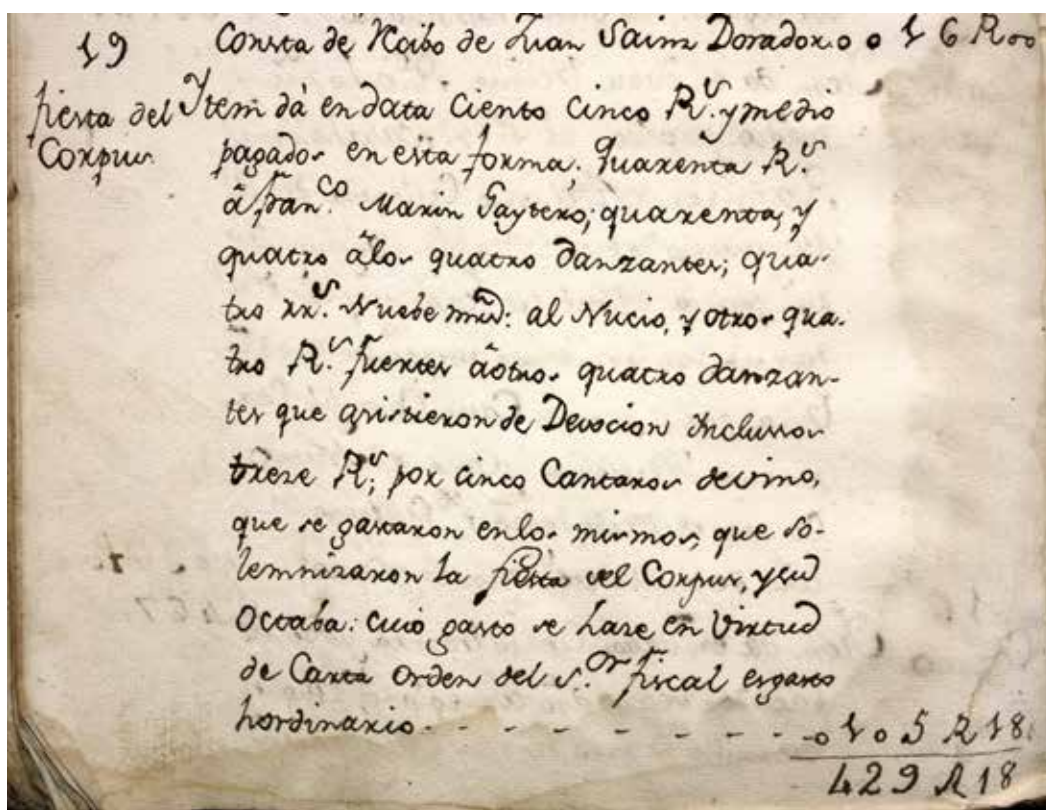 19 Consta de Rcibo de Juan Sainz Dorador o o 16 R oo
fiesta del Corpus
Item dà en data Ciento Cinco R.s y medio
pagados en esta forma. Quarenta R.s
â fran.co Marin Gaytero; quarenta, y
quatro âlos quatro danzantes; qua-
tro rr.s Nuebe mrd: al Nucio, y otros qua-
tro R.s fuertes âotros quatro danzan-
tes que asistieron de Devocion Inclusos
treze R.s; por cinco Cantaros de vino,
que se gastaron enlos mismos, que so-
lemnizaron la fiesta del Corpus, y su
Octaba: cuio gasto se haze en Virtud
de Carta Orden del S.or fiscal es gasto
hordinario - - - - - - - o 1o5 R 18
429 R 18